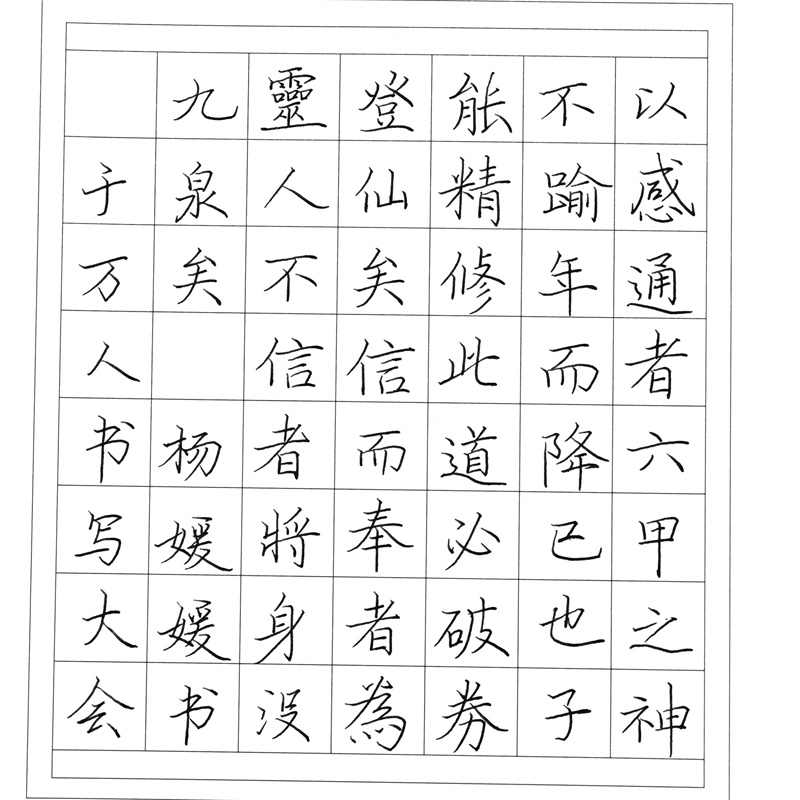 以感通者六甲之神
不踰年而降已也子
能精修此道必破券
登仙矣信而奉者為
靈人不信者將身没
九泉矣 杨媛媛书
于万人书写大会